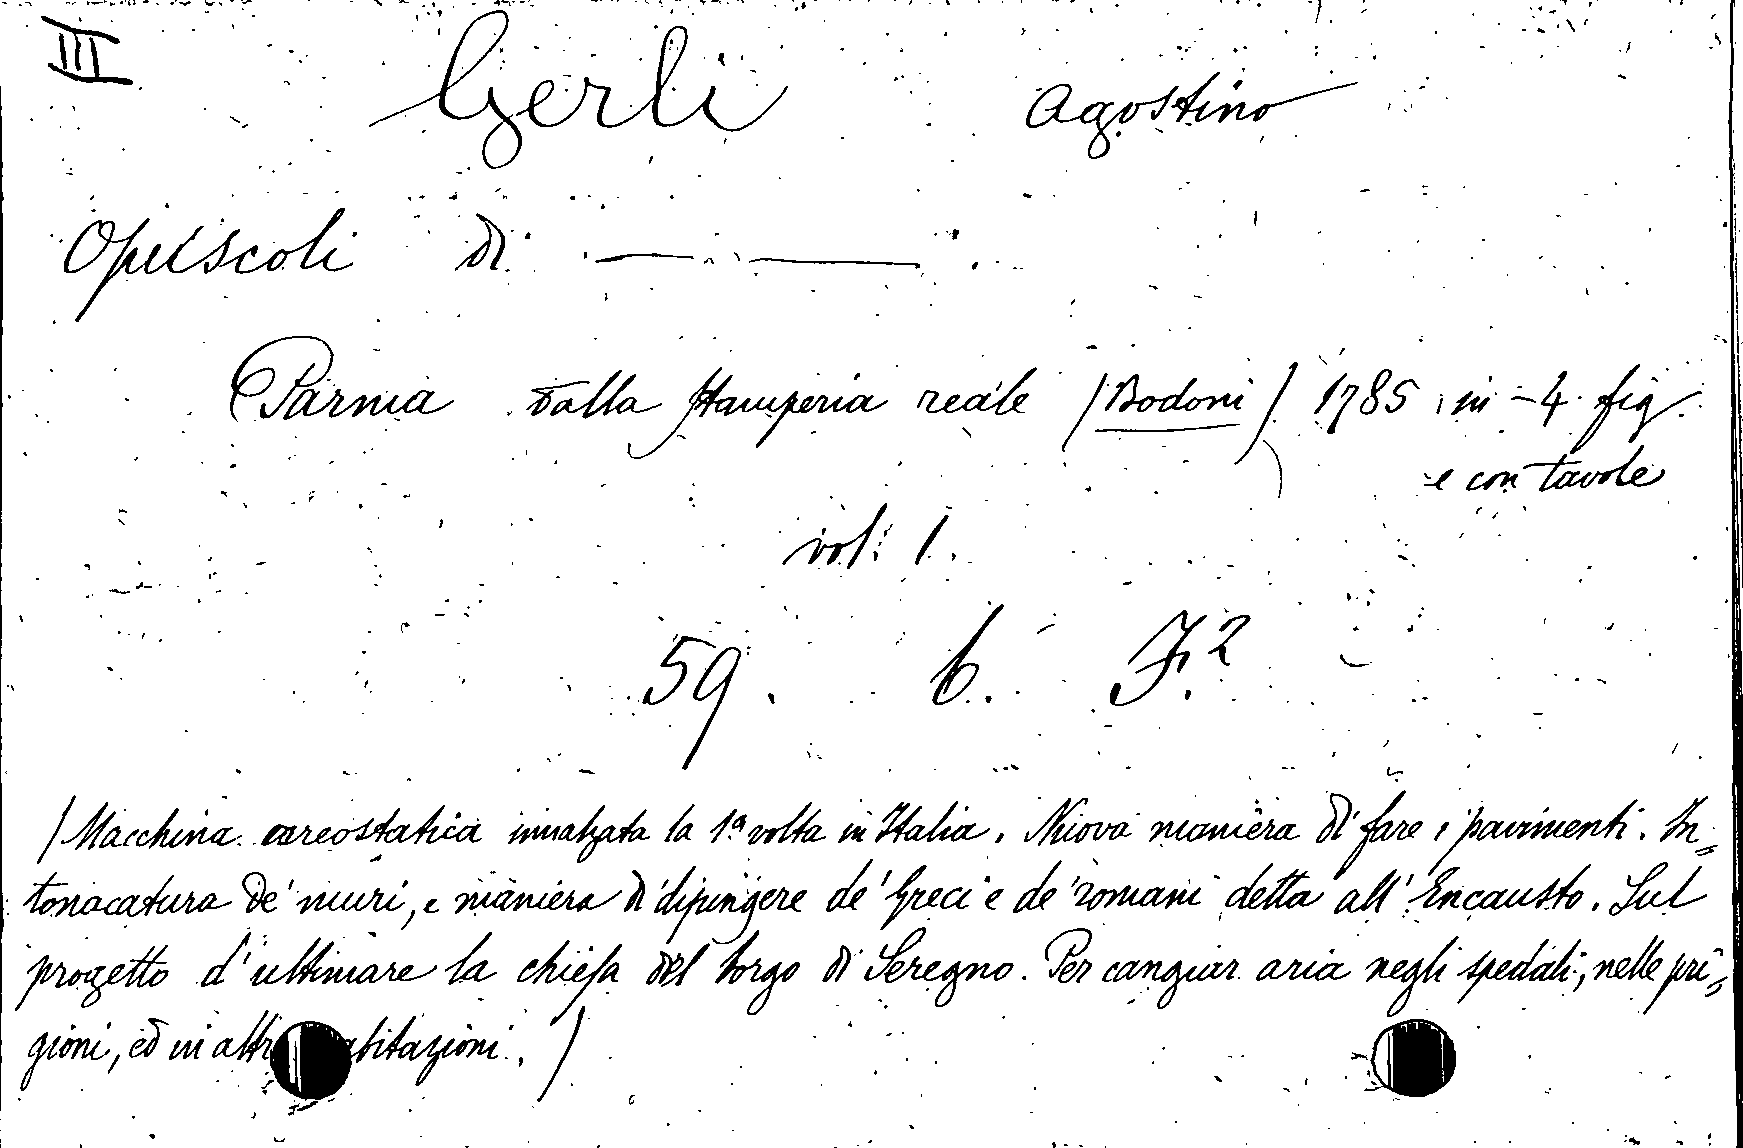 III Gerli Agostino
Opuscoli di ———— .
Parma dalla Stamperia reale (Bodoni) 1785, in-4. fig.
e con tavole
vol: 1.
59. 6. F.²
(Macchina aereostatica innalzata la 1ª volta in Italia. Nuova maniera di fare i pavimenti. In=
tonacatura de' muri, e maniera di dipingere de' Greci e de' romani detta all' Encausto. Sul
progetto d'ultimare la chiesa del borgo di Seregno. Per cangiar aria negli spedali, nelle pri=
gioni, ed in altr abitazioni.)